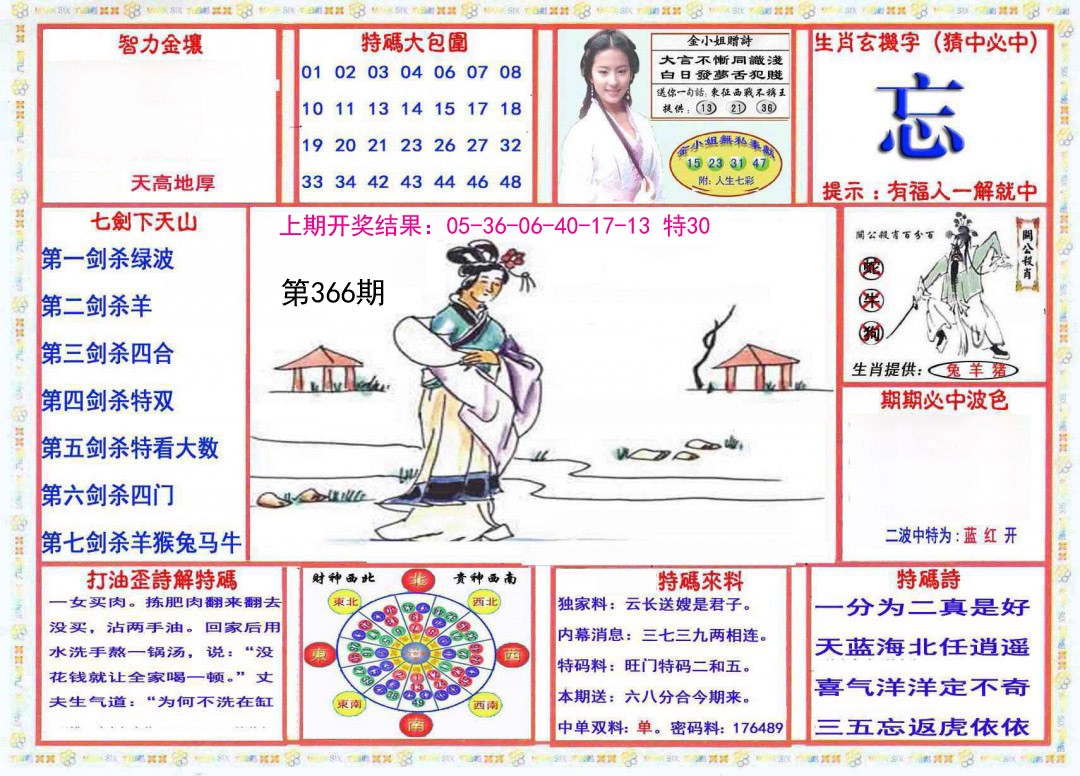 智力金壤
天高地厚
特碼大包圍
01 02 03 04 06 07 08
10 11 13 14 15 17 18
19 20 21 23 26 27 32
33 34 42 43 44 46 48
金小姐贈詩
大言不慚同識淺
白日發夢舌犯賤
送你一句話:東征西戰不擒王
提供: 13 21 36
金小姐無私奉獻
15 23 31 47
附: 人生七彩
生肖玄機字（猜中必中）
忘
提示：有福人一解就中
七劍下天山
第一剑杀绿波
第二剑杀羊
第三剑杀四合
第四剑杀特双
第五剑杀特看大数
第六剑杀四门
第七剑杀羊猴兔马牛
上期开奖结果：05-36-06-40-17-13 特30
第366期
關公殺肖百分百
關公殺肖
蛇
牛
狗
生肖提供: 兔 羊 猪
期期必中波色
二波中特为: 蓝 红 开
打油歪詩解特碼
一女买肉。拣肥肉翻来翻去
没买，沾两手油。回家后用
水洗手熬一锅汤，说：“没
花钱就让全家喝一顿。”丈
夫生气道：“为何不洗在缸
财神西北
贵神西南
北
東北
西北
東
西
東南
西南
南
特碼來料
独家料：云长送嫂是君子。
内幕消息：三七三九两相连。
特码料：旺门特码二和五。
本期送：六八分合今期来。
中单双料：单。密码料：176489
特碼詩
一分为二真是好
天蓝海北任逍遥
喜气洋洋定不奇
三五忘返虎依依